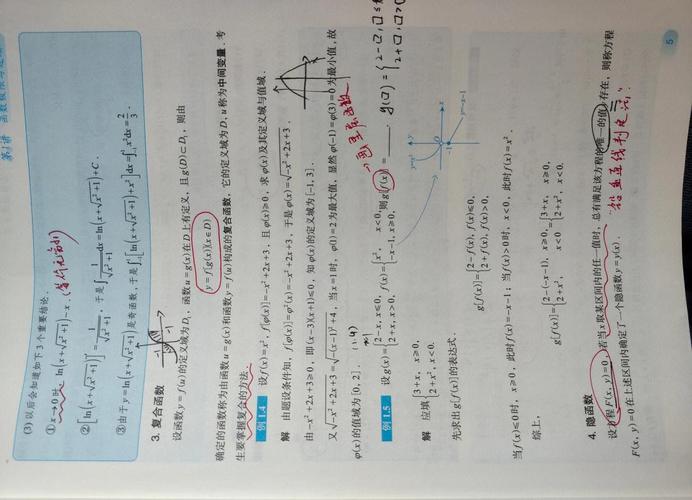 第1讲 函数极限与连续
(3) 以后会知道如下3个重要结论.
① x→0时, ln(x+√(x²+1))~x. (等价无穷小)
② [ln(x+√(x²+1))]′=1/√(x²+1), 于是∫1/√(x²+1) dx=ln(x+√(x²+1))+C.
③ 由于y=ln(x+√(x²+1))是奇函数, 于是∫₋₁¹[ln(x+√(x²+1))+x²]dx=∫₋₁¹x²dx=2/3.
3. 复合函数
设函数y=f(u)的定义域为D₁, 函数u=g(x)在D上有定义, 且g(D)⊂D₁, 则由
y=f[g(x)](x∈D)
确定的函数称为由函数u=g(x)和函数y=f(u)构成的复合函数, 它的定义域为D, u称为中间变量. 考
生要掌握复合的方法.
例1.4 设f(x)=x², f[φ(x)]=-x²+2x+3, 且φ(x)≥0, 求φ(x)及其定义域与值域.
解 由题设条件知, f[φ(x)]=φ²(x)=-x²+2x+3, 于是φ(x)=√(-x²+2x+3).
由-x²+2x+3≥0, 即(x-3)(x+1)≤0, 知φ(x)的定义域为[-1,3].
又√(-x²+2x+3)=√(-(x-1)²+4), 当x=1时, φ(1)=2为最大值, 显然φ(-1)=φ(3)=0为最小值, 故
φ(x)的值域为[0,2]. (1,4)
例1.5 设g(x)={2-x, x≤0, 2+x, x>0, f(x)={x², x<0, -x-1, x≥0, 则g[f(x)]=______.
g(□)={2-□, □≤ 2+□, □>0
解 应填{3+x, x≥0, 2+x², x<0.
先求出g[f(x)]的表达式.
y=x²
y=-x-1
O
x
y
g[f(x)]={2-f(x), f(x)≤0, 2+f(x), f(x)>0,
当f(x)≤0时, x≥0, 此时f(x)=-x-1; 当f(x)>0时, x<0, 此时f(x)=x².
综上,
g[f(x)]={2-(-x-1), x≥0, 2+x², x<0 ={3+x, x≥0, 2+x², x<0.
4. 隐函数
设方程F(x,y)=0, 若当x取某区间内的任一值时, 总有满足该方程的唯一的值y存在, 则称方程
F(x,y)=0在上述区间内确定了一个隐函数y=y(x).
"铅垂线判定 
5